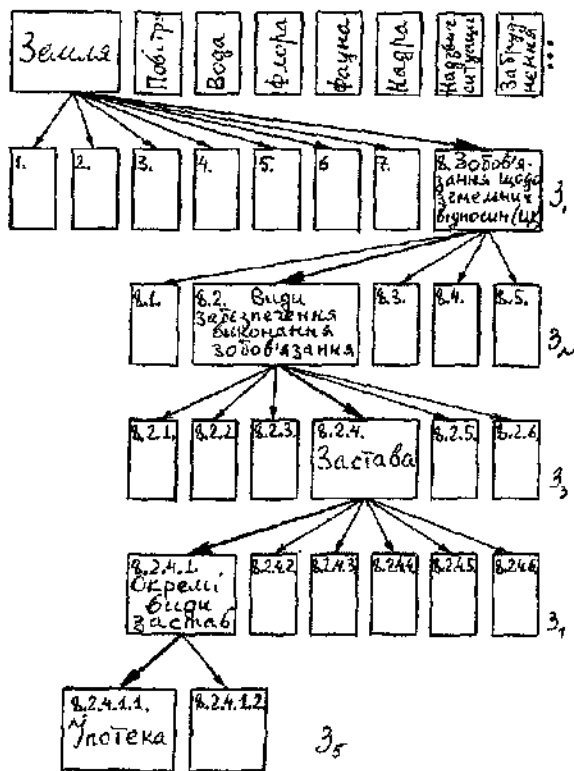 Земля
Повітр
Вода
Флора
Фауна
Надра
Надзвич
ситуаці
Забруд
нення
...
1.
2.
3.
4.
5.
6
7.
8. Зобов'я-
зання щодо
земельних
відносин (ЦК)
З₁
8.1.
8.2. Види
забезпечення
виконання
зобов'язання
8.3.
8.4.
8.5.
З₂
8.2.1.
8.2.2
8.2.3.
8.2.4.
Застава
8.2.5.
8.2.6.
З₃
8.2.4.1.
Окремі
види
застав
8.2.4.2.
8.2.4.3.
8.2.4.4.
8.2.4.5.
8.2.4.6.
8.2.4.1.1.
Іпотека
8.2.4.1.2.
З₅